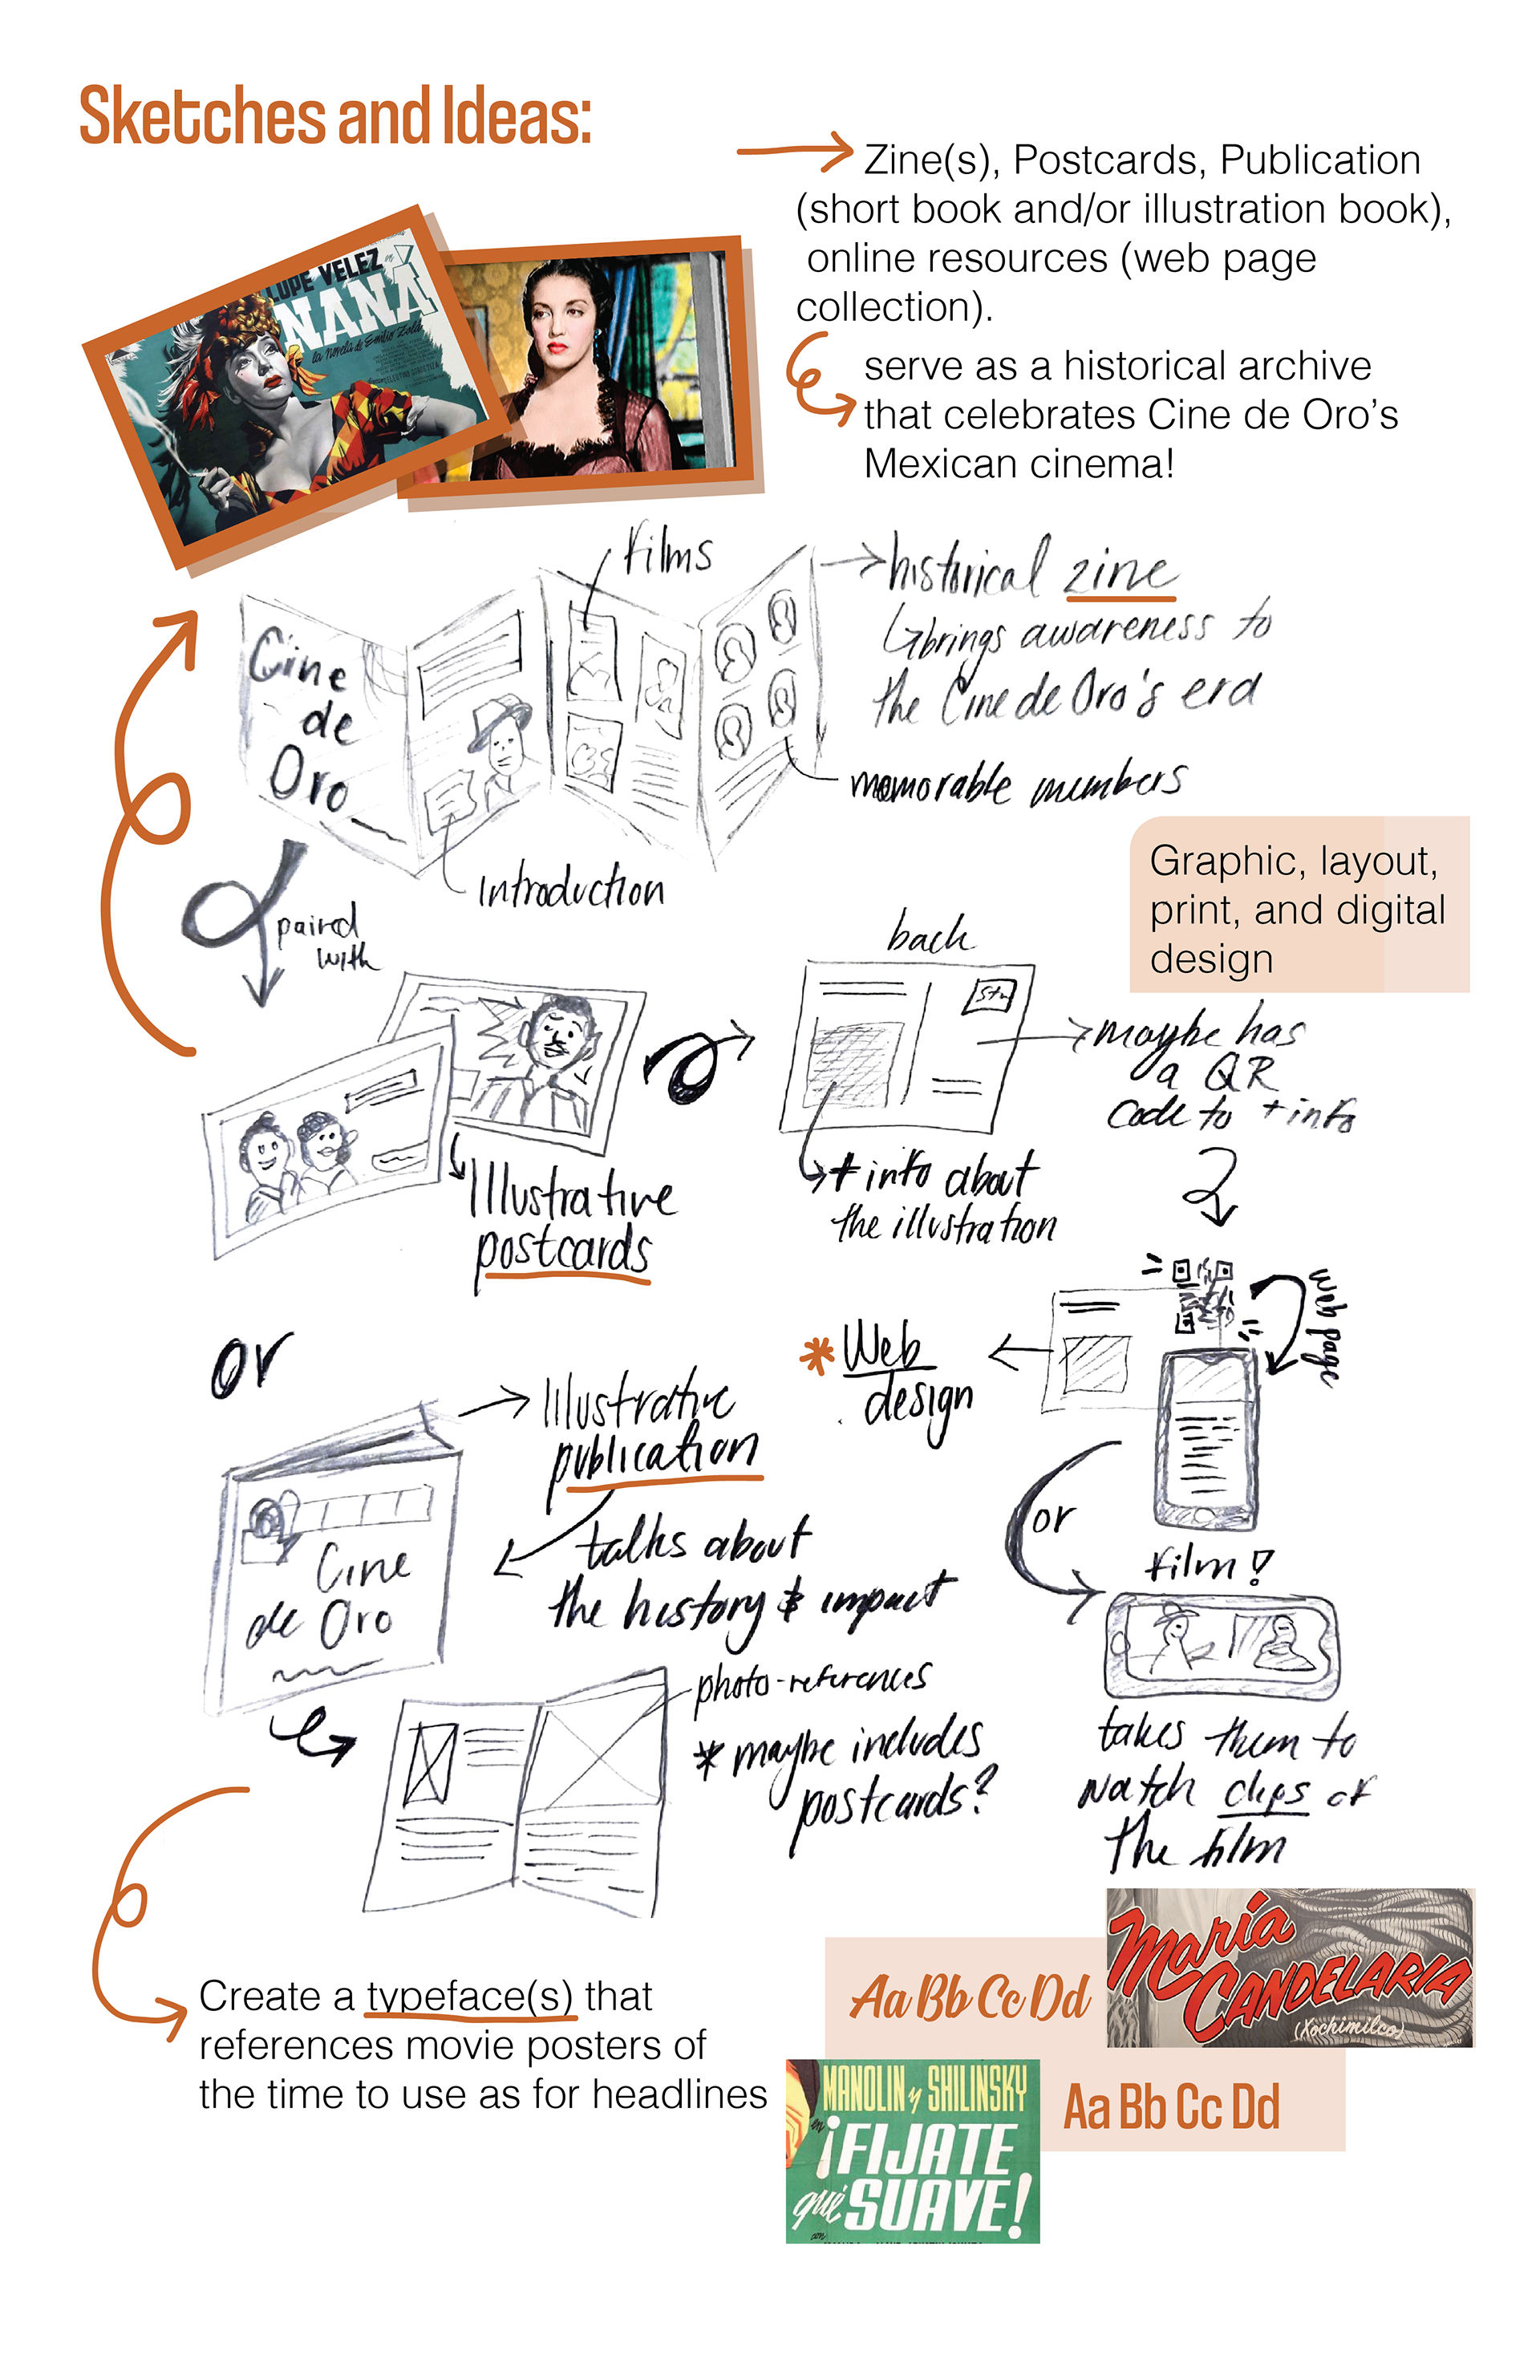 Sketches and Ideas:
Zine(s), Postcards, Publication
(short book and/or illustration book),
online resources (web page
collection).
serve as a historical archive
that celebrates Cine de Oro's
Mexican cinema!
LUPE VELEZ en
NANÁ
la novela de Emilio Zola
films
historical zine
brings awareness to
the Cine de Oro's era
Cine
de
Oro
memorable members
Introduction
Graphic, layout,
print, and digital
design
paired
with
back
maybe has
a QR
code to + info
+ info about
the illustration
Illustrative
postcards
or
web page
* Web
design
Illustrative
publication
talks about
the history & impact
Cine
de Oro
or
film!
photo-references
* maybe includes
postcards?
takes them to
watch clips of
the film
Create a typeface(s) that
references movie posters of
the time to use as for headlines
Aa Bb Cc Dd
María
CANDELARIA
(Xochimilco)
MANOLIN y SHILINSKY
en
¡FIJATE
qué SUAVE!
con
Aa Bb Cc Dd